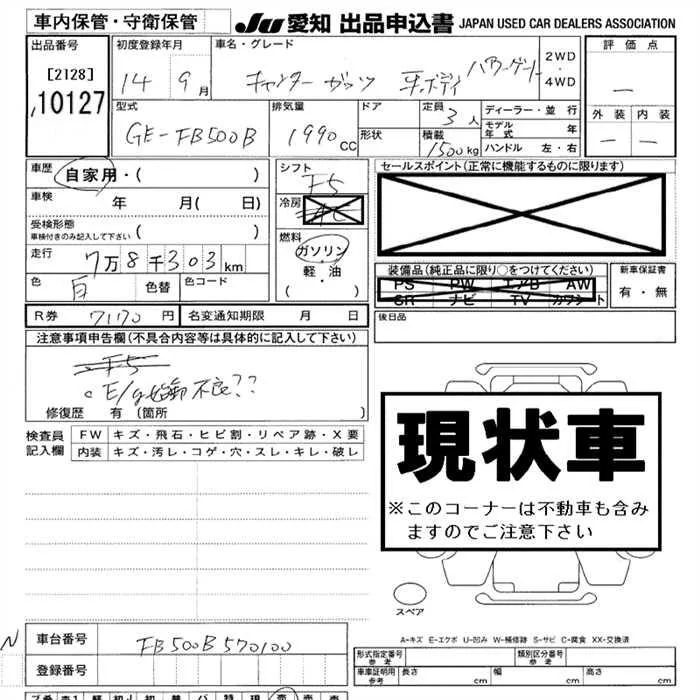 車内保管・守衛保管
JU 愛知 出品申込書 JAPAN USED CAR DEALERS ASSOCIATION
出品番号 初度登録年月 車名・グレード 2WD・4WD 評価点
[2128] 14 9月 キャンター ガッツ 平ボディ パワーゲート —
10127 型式 排気量 ドア 定員 3人 ディーラー・並行 外装 内装
GE-FB500B 1990cc 形状 積載 1500kg モデル年式 年 — —
ハンドル 左・右
車歴 自家用・( ) シフト F5 セールスポイント(正常に機能するものに限ります)
車検 年 月( 日) 冷房
受検形態 車検付きのみ記入して下さい ( ) 燃料 ガソリン・軽・油 ( ・ )
走行 7万8千303km 装備品(純正品に限り○をつけてください) 新車保証書
色 白 色替 色コード PS PW エアB AW 有・無
SR ナビ TV カワシート
R券 7170円 名変通知期限 月 日 後日品
注意事項申告欄(不具合内容等は具体的に記入して下さい)
F5
○E/g始動不良??
修復歴 有(箇所 )
検査員 FW キズ・飛石・ヒビ割・リペア跡・X要
記入欄 内装 キズ・汚レ・コゲ・穴・スレ・キレ・破レ
現状車
※このコーナーは不動車も含み
ますのでご注意下さい
スペア
A-キズ E-エクボ U-凹み W-補修跡 S-サビ C-腐食 XX-交換済
N 車台番号 FB500B 570100
登録番号
形式指定番号 参考 類別区分番号 参考
車庫証明用 参考 長さ cm 幅 cm 高さ cm